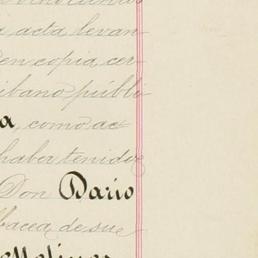 acta levan
en copia cer
ibano públi
a, como ac
haber tenido
Don Dario
bacea de su
Molinas